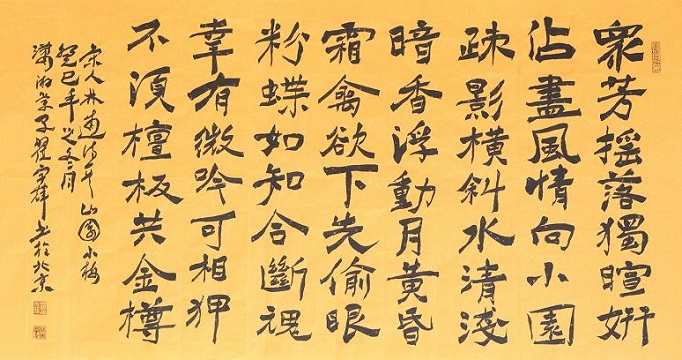 衆芳搖落獨暄妍
佔盡風情向小園
疎影橫斜水清淺
暗香浮動月黃昏
霜禽欲下先偷眼
粉蝶如知合斷魂
幸有微吟可相狎
不須檀板共金樽
宋人林逋詩其一山園小梅
癸巳年之冬月
於北京